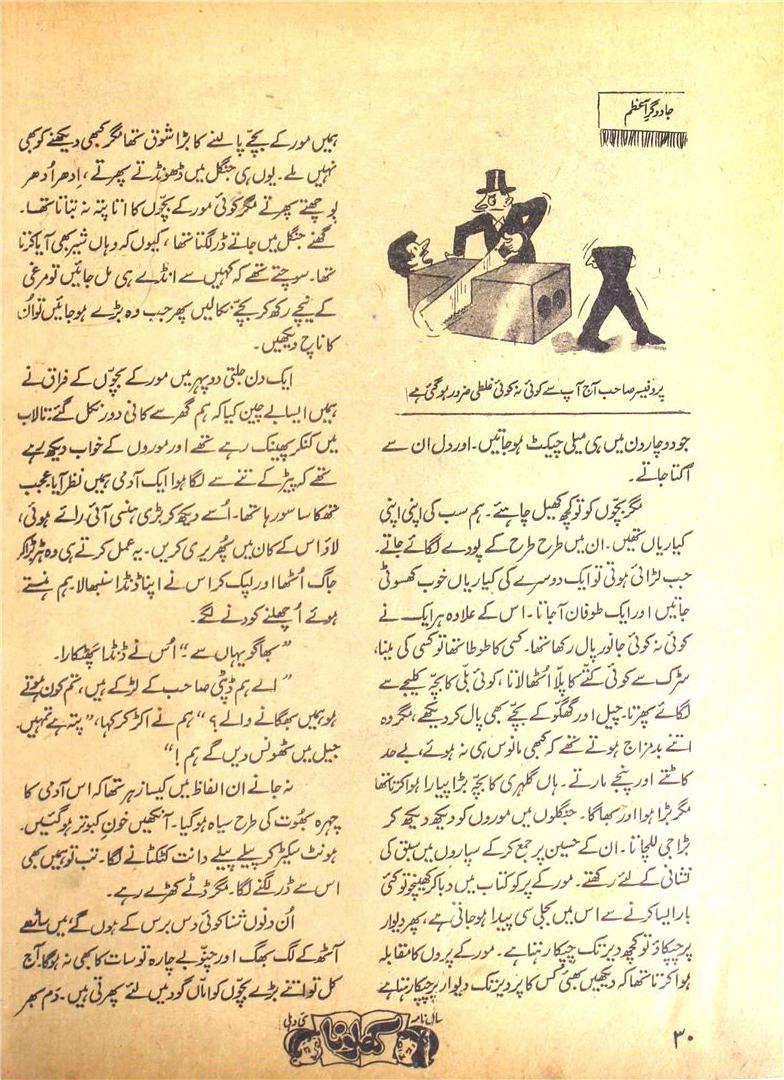 جادوگرِ اعظم
پروفیسر صاحب آج آپ سے کوئی نہ کوئی غلطی ضرور ہوگئی ہے
جو دو چار دن میں ہی میلی چیکٹ ہو جاتیں۔ اور دل ان سے
اُکتا جاتے۔
مگر بچّوں کو تو کچھ کھیل چاہیئے۔ ہم سب کی اپنی اپنی
کیاریاں تھیں۔ ان میں طرح طرح کے پودے لگائے جاتے۔
جب لڑائی ہوتی تو ایک دوسرے کی کیاریاں خوب کھسوٹی
جاتیں اور ایک طوفان آجاتا۔ اس کے علاوہ ہر ایک نے
کوئی نہ کوئی جانور پال رکھا تھا۔ کسی کا طوطا تھا تو کسی کی مینا،
سڑک سے کوئی کتّے کا پلّا اُٹھا لاتا، کوئی بلّی کا بچّہ کلیجے سے
لگائے پھرتا۔ چیل اور گھگّو کے بچّے بھی پال کر دیکھے، مگر وہ
اتنے بدمزاج ہوتے تھے کہ کبھی مانوس ہی نہ ہوئے، بے حد
کاٹتے اور پنجے مارتے۔ ہاں گلہری کا بچّہ بڑا پیارا ہوا کرتا تھا
مگر بڑا ہوا اور بھاگا۔ جنگلوں میں موروں کو دیکھ دیکھ کر
بڑا جی للچاتا۔ ان کے حسین پر جمع کرکے سپاروں میں سبق کی
نشانی کے لئے رکھتے۔ مور کے پر کو کتاب میں دبا کر کھینچو تو کئی
بار ایسا کرنے سے اس میں بجلی سی پیدا ہو جاتی ہے، پھر دیوار
پر چپکاؤ تو کچھ دیر تک چپکا رہتا ہے۔ مور کے پروں کا مقابلہ
ہوا کرتا تھا کہ دیکھیں بھئی کس کا پر دیر تک دیوار پر چپکا رہتا ہے
ہمیں مور کے بچّے پالنے کا بڑا شوق تھا مگر کبھی دیکھنے کو بھی
نہیں ملے۔ یوں ہی جنگل میں ڈھونڈتے پھرتے، اِدھر اُدھر
پوچھتے پھرتے مگر کوئی مور کے بچّوں کا اتا پتہ نہ بتاتا تھا۔
گھنے جنگل میں جاتے ڈر لگتا تھا، کیوں کہ وہاں شیر بھی آیا کرتا
تھا۔ سوچتے تھے کہ کہیں سے انڈے ہی مل جائیں تو مرغی
کے نیچے رکھ کر بچّے نکالیں پھر جب وہ بڑے ہو جائیں تو اُن
کا ناچ دیکھیں۔
ایک دن جلتی دوپہر میں مور کے بچّوں کے فراق نے
ہمیں ایسا بے چین کیا کہ ہم گھر سے کافی دور نکل گئے۔ تالاب
میں کنکر پھینک رہے تھے اور موروں کے خواب دیکھ رہے
تھے کہ پیڑ کے تنے سے لگا ہوا ایک آدمی ہمیں نظر آیا۔ عجب
تھکا سا سو رہا تھا۔ اُسے دیکھ کر بڑی ہنسی آئی رائے ہوئی،
لاؤ اس کے کان میں پھریری کریں۔ یہ عمل کرتے ہی وہ ہڑبڑا کر
جاگ اُٹھا اور لپک کر اس نے اپنا ڈنڈا سنبھالا۔ ہم ہنستے
ہوئے اُچھلنے کودنے لگے۔
"بھاگو یہاں سے۔" اُس نے ڈنڈا پھٹکارا۔
"اے ہم ڈپٹی صاحب کے لڑکے ہیں، تم کون ہوتے
ہو ہمیں بھگانے والے؟" ہم نے اکڑ کر کہا، "پتہ ہے تمہیں
جیل میں ٹھونس دیں گے ہم!"
نہ جانے ان الفاظ میں کیسا زہر تھا کہ اس آدمی کا
چہرہ بھُوت کی طرح سیاہ ہوگیا۔ آنکھیں خونِ کبوتر ہوگئیں۔
ہونٹ سکیڑ کر پیلے پیلے دانت کٹکٹانے لگا۔ تب تو ہمیں بھی
اس سے ڈر لگنے لگا۔ مگر ڈٹے کھڑے رہے۔
اُن دلوں ثنا کوئی دس برس کے ہوں گے، میں ساڑھے
آٹھ کے لگ بھگ اور چنّو بے چارہ تو سات کا بھی نہ ہوگا۔ آج
کل تو اتنے بڑے بچّوں کو امّاں گود میں لئے پھرتی ہیں۔ دم بھر
سال نامہ کھلونا نئی دہلی
۳۰